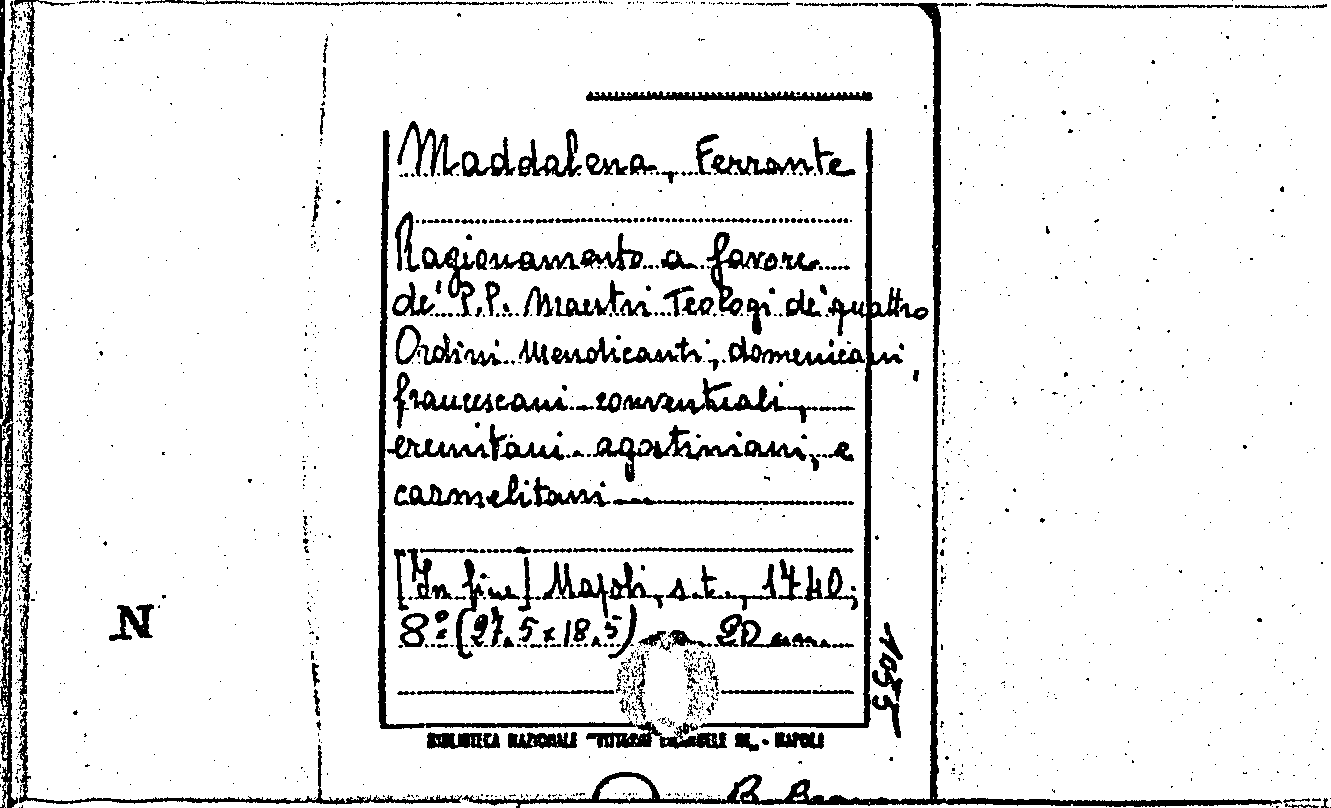 Maddalena, Ferrante
Ragionamento a favore
de' P.P. Maestri Teologi de' quattro
Ordini Mendicanti, domenicani,
francescani conventuali,
eremitani agostiniani, e
carmelitani
[In fine] Napoli, s.t., 1740;
8º (27.5 x 18.5)
N
BIBLIOTECA NAZIONALE "VITTORIO EMANUELE III" - NAPOLI